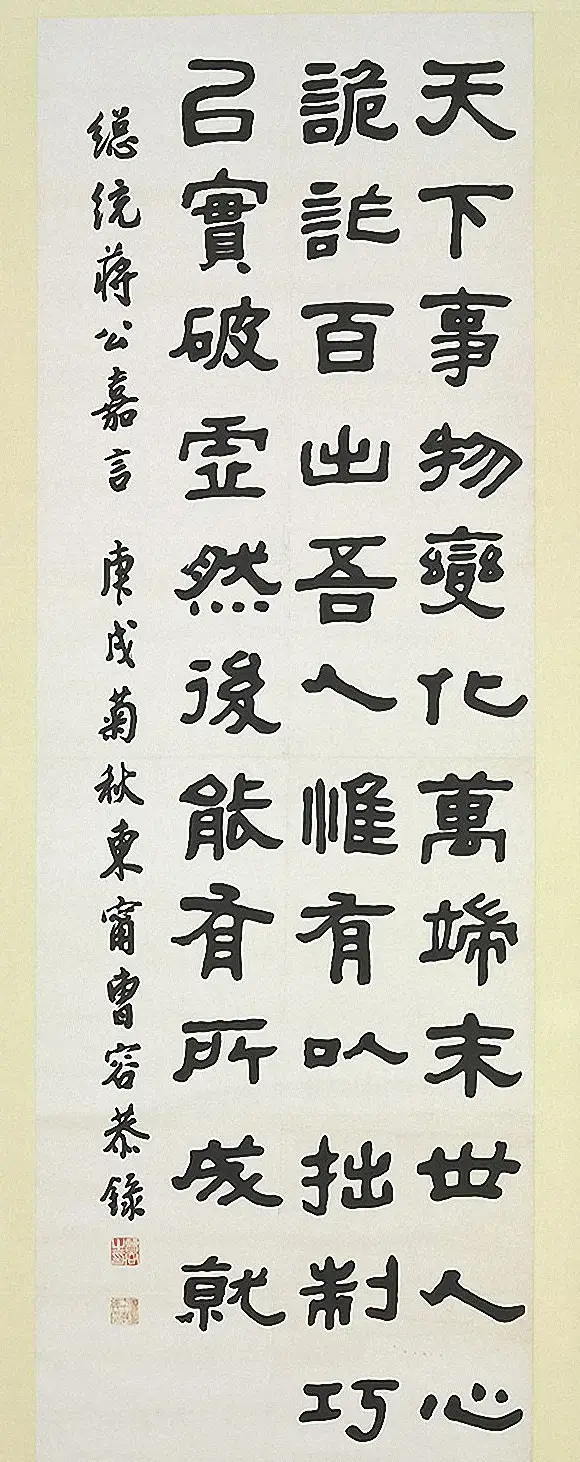 天下事物變化萬端末世人心
詭詐百出吾人惟有以拙制巧
以實破虛然後能有所成就
總統蔣公嘉言 庚戌菊秋東甯曹容恭錄